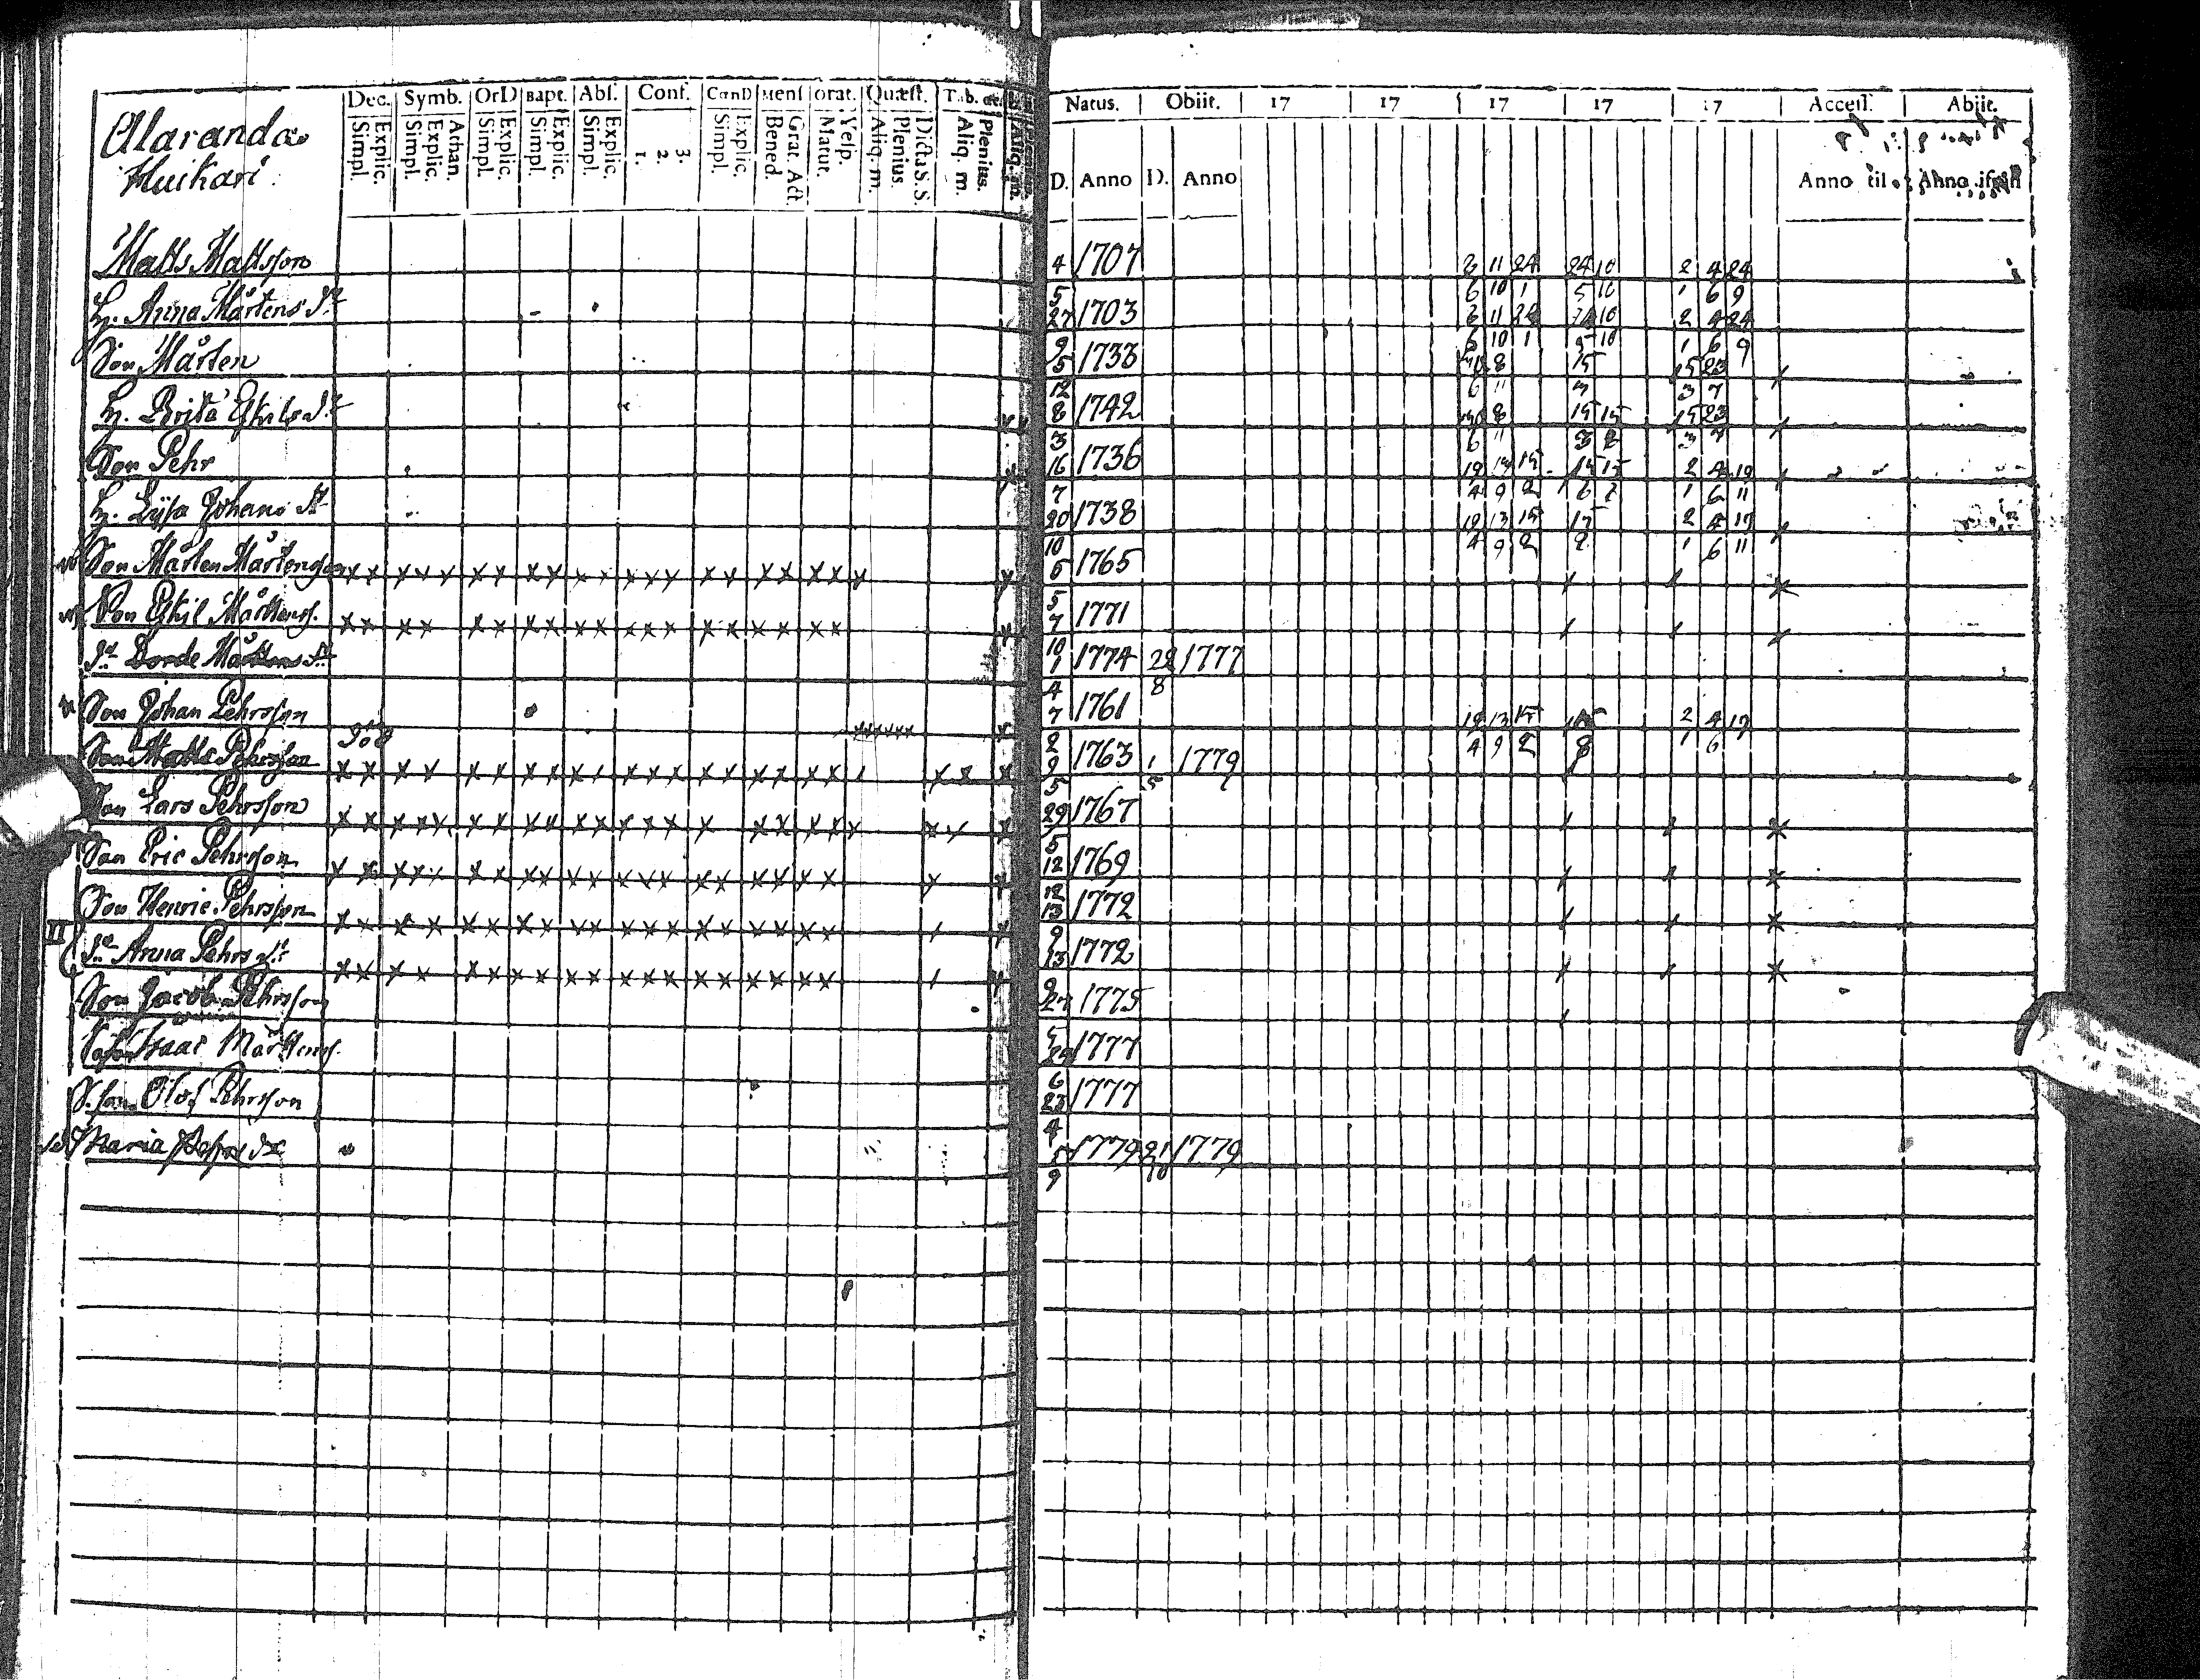 Dec. Symb. OrD Bapt. Abs. Conf. CœnD Mens Orat. Quæst. Tab.
Natus. Obiit. 17 17 17 17 17 Access. Abiit.
Alaranda
Huikari
Explic. Simpl. Athan. Explic. Simpl. Explic. Simpl. Explic. Simpl. Explic. Simpl. 3. 2. 1. Explic. Simpl. Grat. Act. Bened. Vesp. Matut. Dicta S. S. Plenius. Aliq. m. Plenius. Aliq. m.
D. Anno D. Anno Anno til Anno ifrån
Matts Mattsson 4 1707 2 11 24 24 10 2 4 24
5 6 10 1 5 10 1 6 9
H. Anna Mårtens Dr 27 1703 2 11 24 24 10 2 4 24
9 6 10 1 5 10 1 6 9
Son Mårten 5 1733 8 15 15 23
12 6 11 7 3 7
H. Brita Eskils Dr 8 1742 8 15 15 15 23
3 6 11 3 2 3 7
Son Pehr 16 1736 19 13 15 15 15 2 4 19
7 4 9 2 6 2 1 6 11
H. Lysa Johans Dr 20 1738 19 13 15 15 2 4 17
10 4 9 2 2 1 6 11
Son Mårten Mårtensson 6 1765
5
Son Eskil Mårtenss. 7 1771
10
Dr Borde Mårtens Dr 1 1774 22 1777
4 8
Son Johan Pehrsson 7 1761 19 13 15 15 2 4 17
2 4 9 2 8 1 6
Son Matts Pehrsson 9 1763 1 1779
5 5
Son Lars Pehrsson 29 1767
5
Son Eric Pehrsson 12 1769
12
Son Henric Pehrsson 13 1772
9
Dr Anna Pehrs Dr 13 1772
9
Son Jacob Pehrsson 27 1775
5
Isaac Mårtens. 29 1777
6
S.son Olof Pehrsson 23 1777
4
Maria Pehrs Dr 5 1779 21 1779
9 10